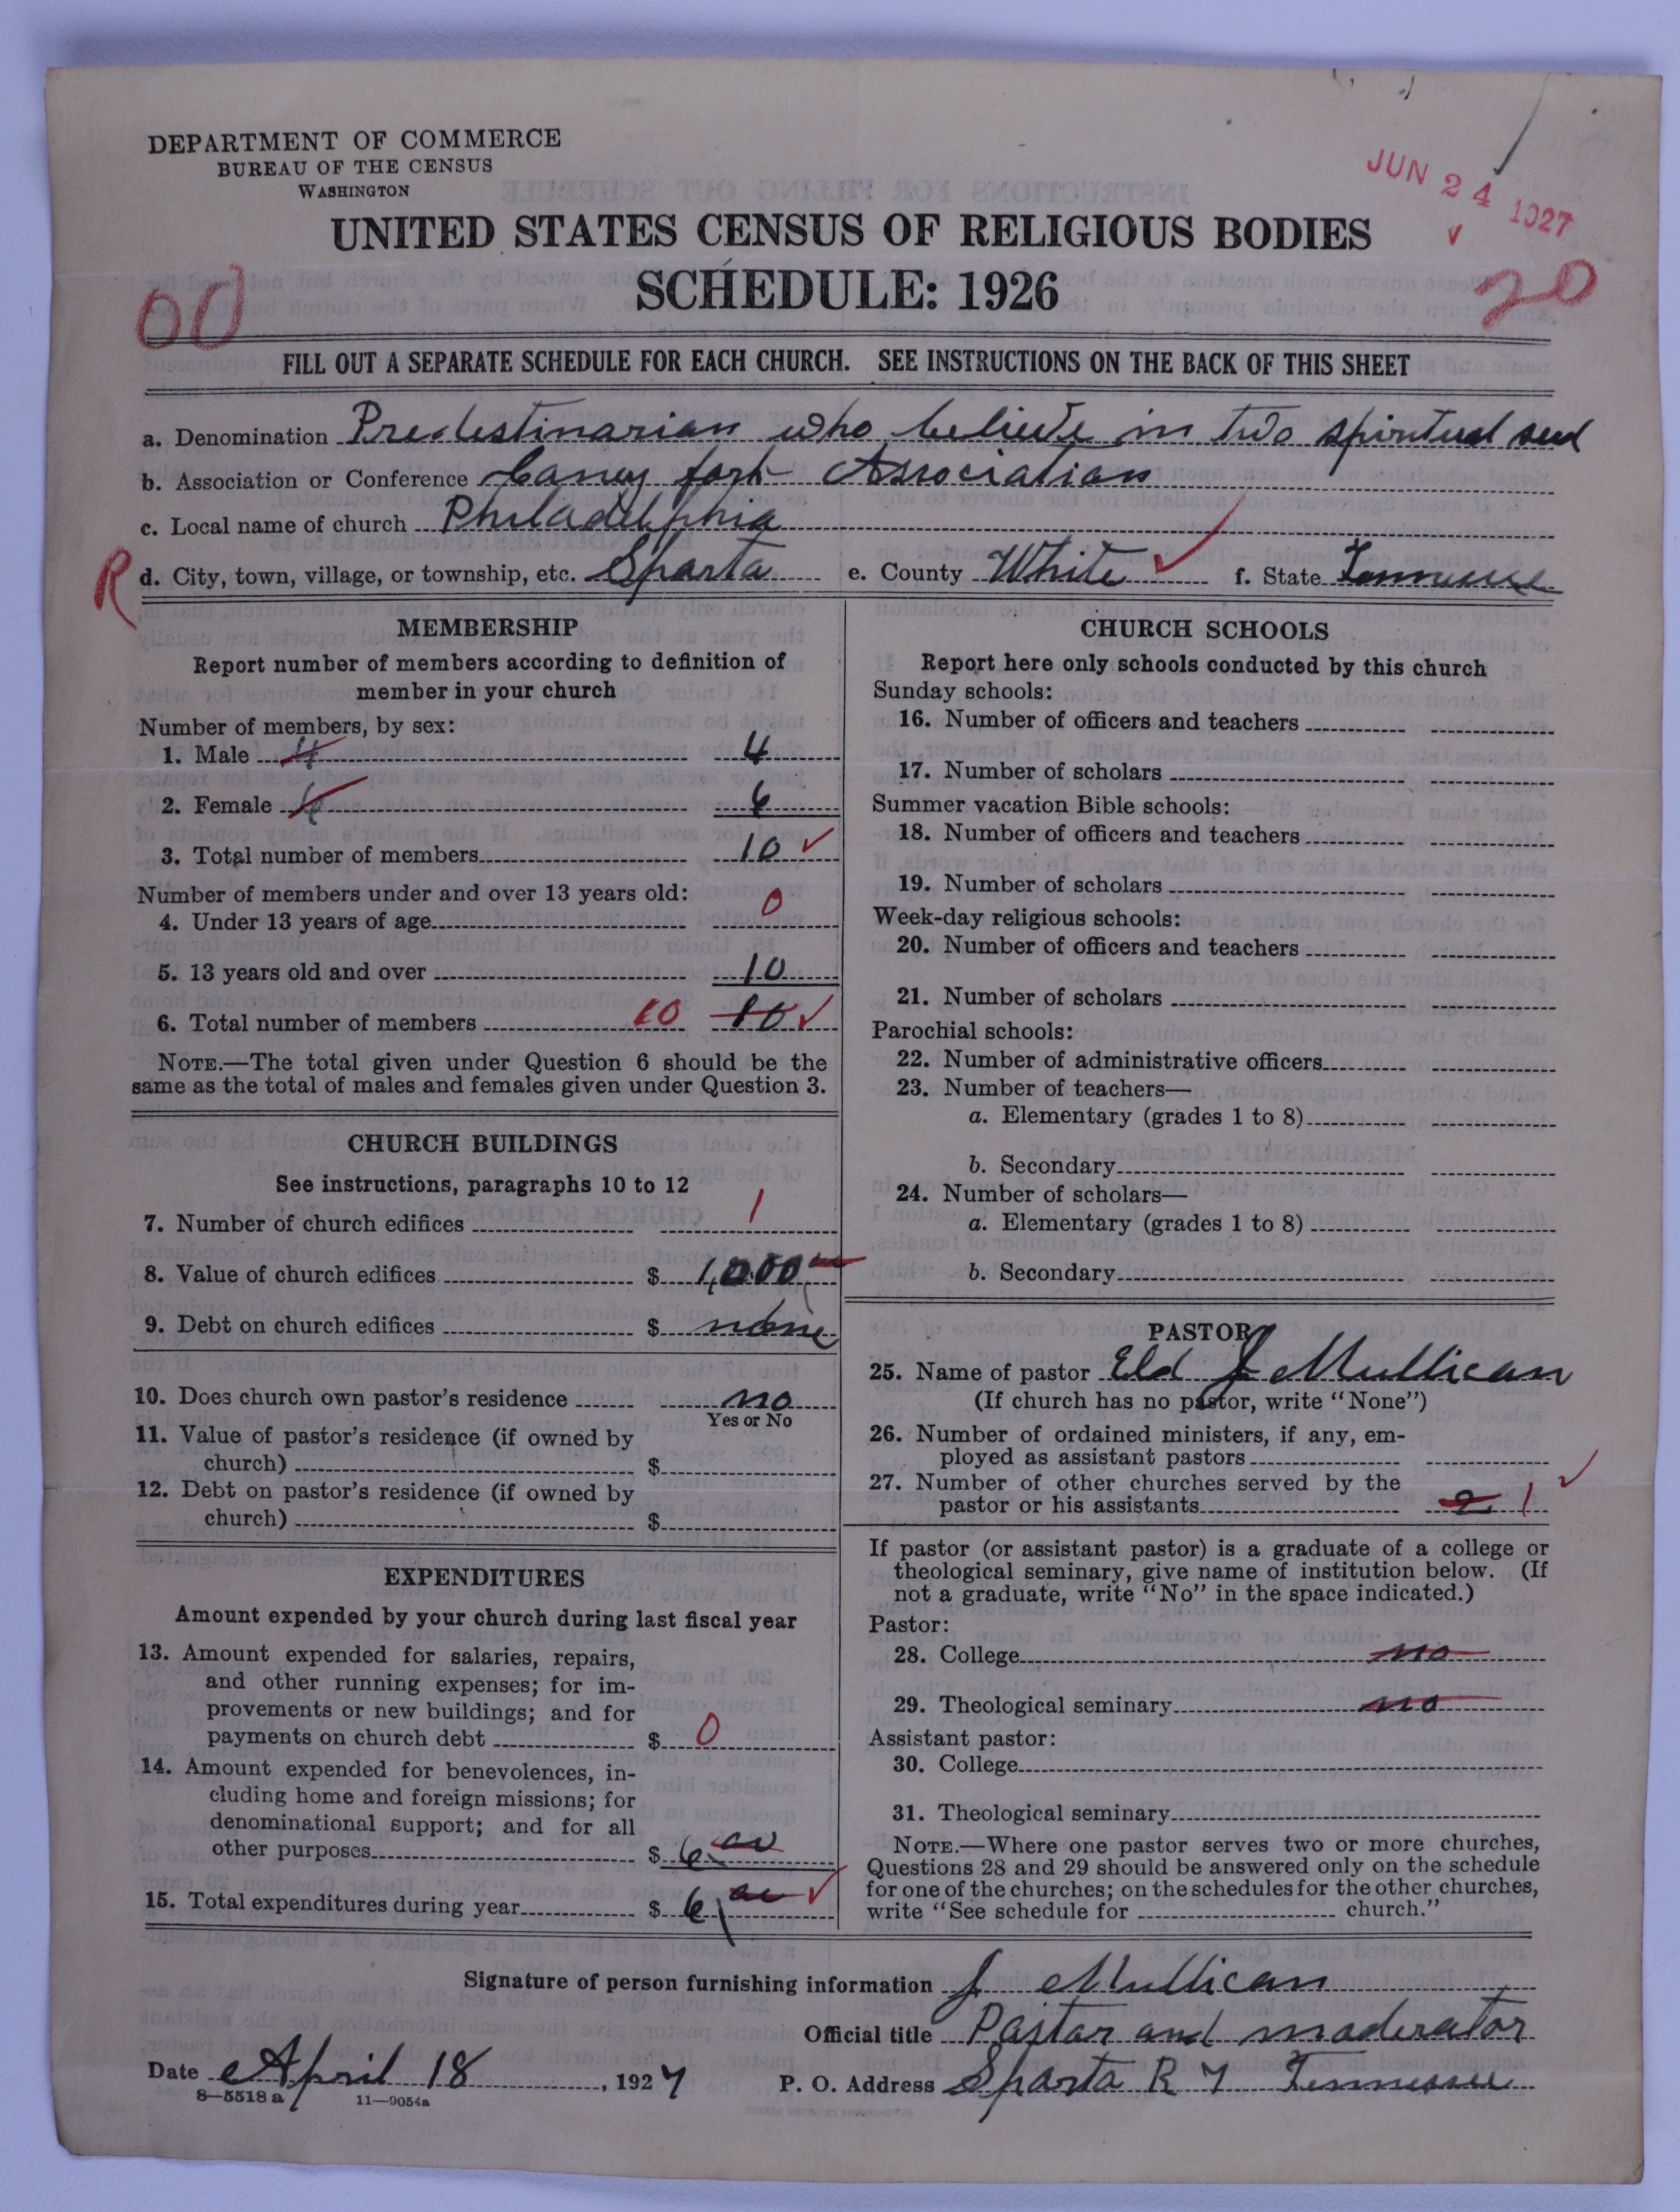 DEPARTMENT OF COMMERCE
BUREAU OF THE CENSUS
WASHINGTON
JUN 24 1927
UNITED STATES CENSUS OF RELIGIOUS BODIES
SCHEDULE: 1926
00
20
FILL OUT A SEPARATE SCHEDULE FOR EACH CHURCH. SEE INSTRUCTIONS ON THE BACK OF THIS SHEET
a. Denomination Predestinarian who believe in two spiritual seed
b. Association or Conference Caney fork Association
c. Local name of church Philadelphia
R d. City, town, village, or township, etc. Sparta e. County White f. State Tennessee
MEMBERSHIP
Report number of members according to definition of
member in your church
Number of members, by sex:
1. Male 4 4
2. Female 6 6
3. Total number of members 10
Number of members under and over 13 years old:
4. Under 13 years of age 0
5. 13 years old and over 10
6. Total number of members 10 10
NOTE.—The total given under Question 6 should be the
same as the total of males and females given under Question 3.
CHURCH BUILDINGS
See instructions, paragraphs 10 to 12
7. Number of church edifices 1
8. Value of church edifices $ 1,000 00
9. Debt on church edifices $ none
10. Does church own pastor's residence no
Yes or No
11. Value of pastor's residence (if owned by
church) $
12. Debt on pastor's residence (if owned by
church) $
EXPENDITURES
Amount expended by your church during last fiscal year
13. Amount expended for salaries, repairs,
and other running expenses; for im-
provements or new buildings; and for
payments on church debt $ 0
14. Amount expended for benevolences, in-
cluding home and foreign missions; for
denominational support; and for all
other purposes $ 6.00
15. Total expenditures during year $ 6 00
CHURCH SCHOOLS
Report here only schools conducted by this church
Sunday schools:
16. Number of officers and teachers
17. Number of scholars
Summer vacation Bible schools:
18. Number of officers and teachers
19. Number of scholars
Week-day religious schools:
20. Number of officers and teachers
21. Number of scholars
Parochial schools:
22. Number of administrative officers
23. Number of teachers—
a. Elementary (grades 1 to 8)
b. Secondary
24. Number of scholars—
a. Elementary (grades 1 to 8)
b. Secondary
PASTOR
25. Name of pastor Eld J Mullican
(If church has no pastor, write "None")
26. Number of ordained ministers, if any, em-
ployed as assistant pastors
27. Number of other churches served by the
pastor or his assistants 2 1
If pastor (or assistant pastor) is a graduate of a college or
theological seminary, give name of institution below. (If
not a graduate, write "No" in the space indicated.)
Pastor:
28. College no
29. Theological seminary no
Assistant pastor:
30. College
31. Theological seminary
NOTE.—Where one pastor serves two or more churches,
Questions 28 and 29 should be answered only on the schedule
for one of the churches; on the schedules for the other churches,
write "See schedule for church."
Signature of person furnishing information J Mullican
Official title Pastor and moderator
Date April 18, 1927 P. O. Address Sparta R 7 Tennessee
8—5518 a 11—9054a